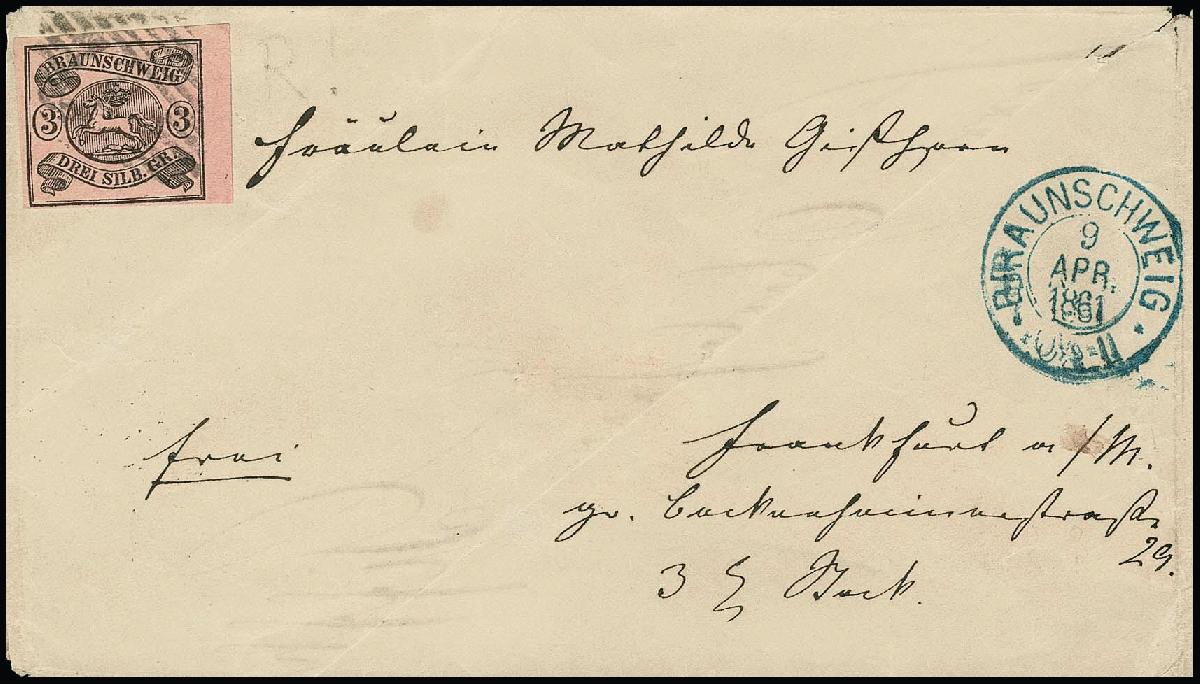 BRAUNSCHWEIG
3 3
DREI SILB. GR.
Fräulein Mathilde
BRAUNSCHWEIG
9
APR.
1861
frei
Frankfurt a/M.
gr. Bockenheimerstraße
29.
3 Stock.